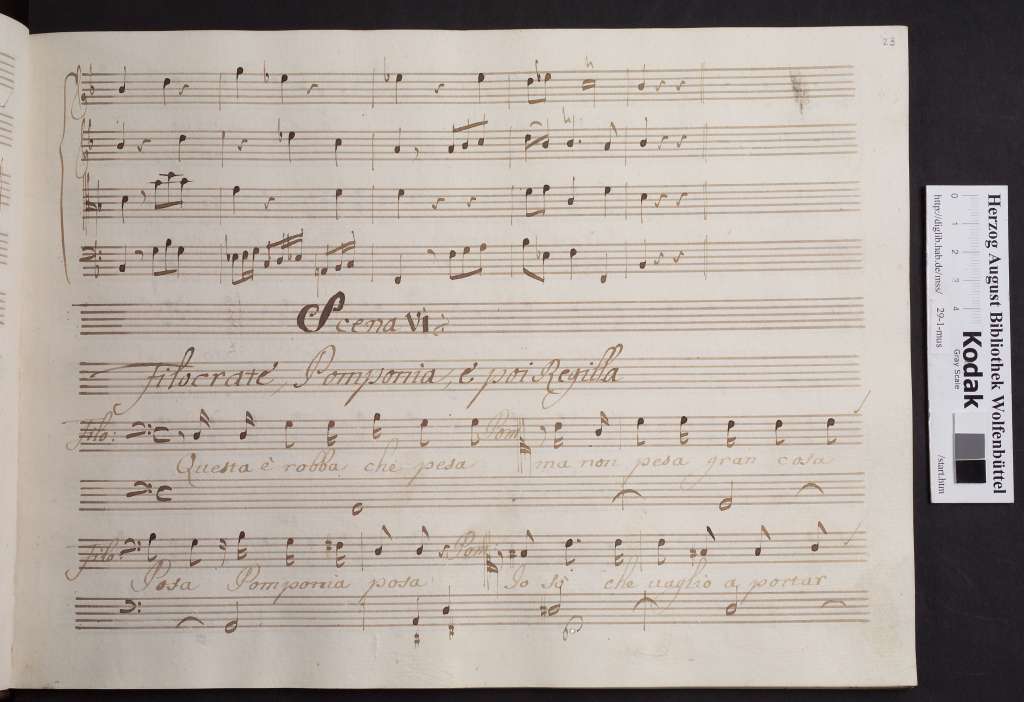 23
Scena VI:
Filocrate, Pomponia, e poi Regilla
Filo: Pom:
Questa è robba che pesa ma non pesa gran cosa
Filo: Pom:
Posa Pomponia posa Io sò che uaglio a portar
Herzog August Bibliothek Wolfenbüttel
http://diglib.hab.de/mss/ 29-1-mus /start.htm
0 1 2 3 4
Kodak
Gray Scale